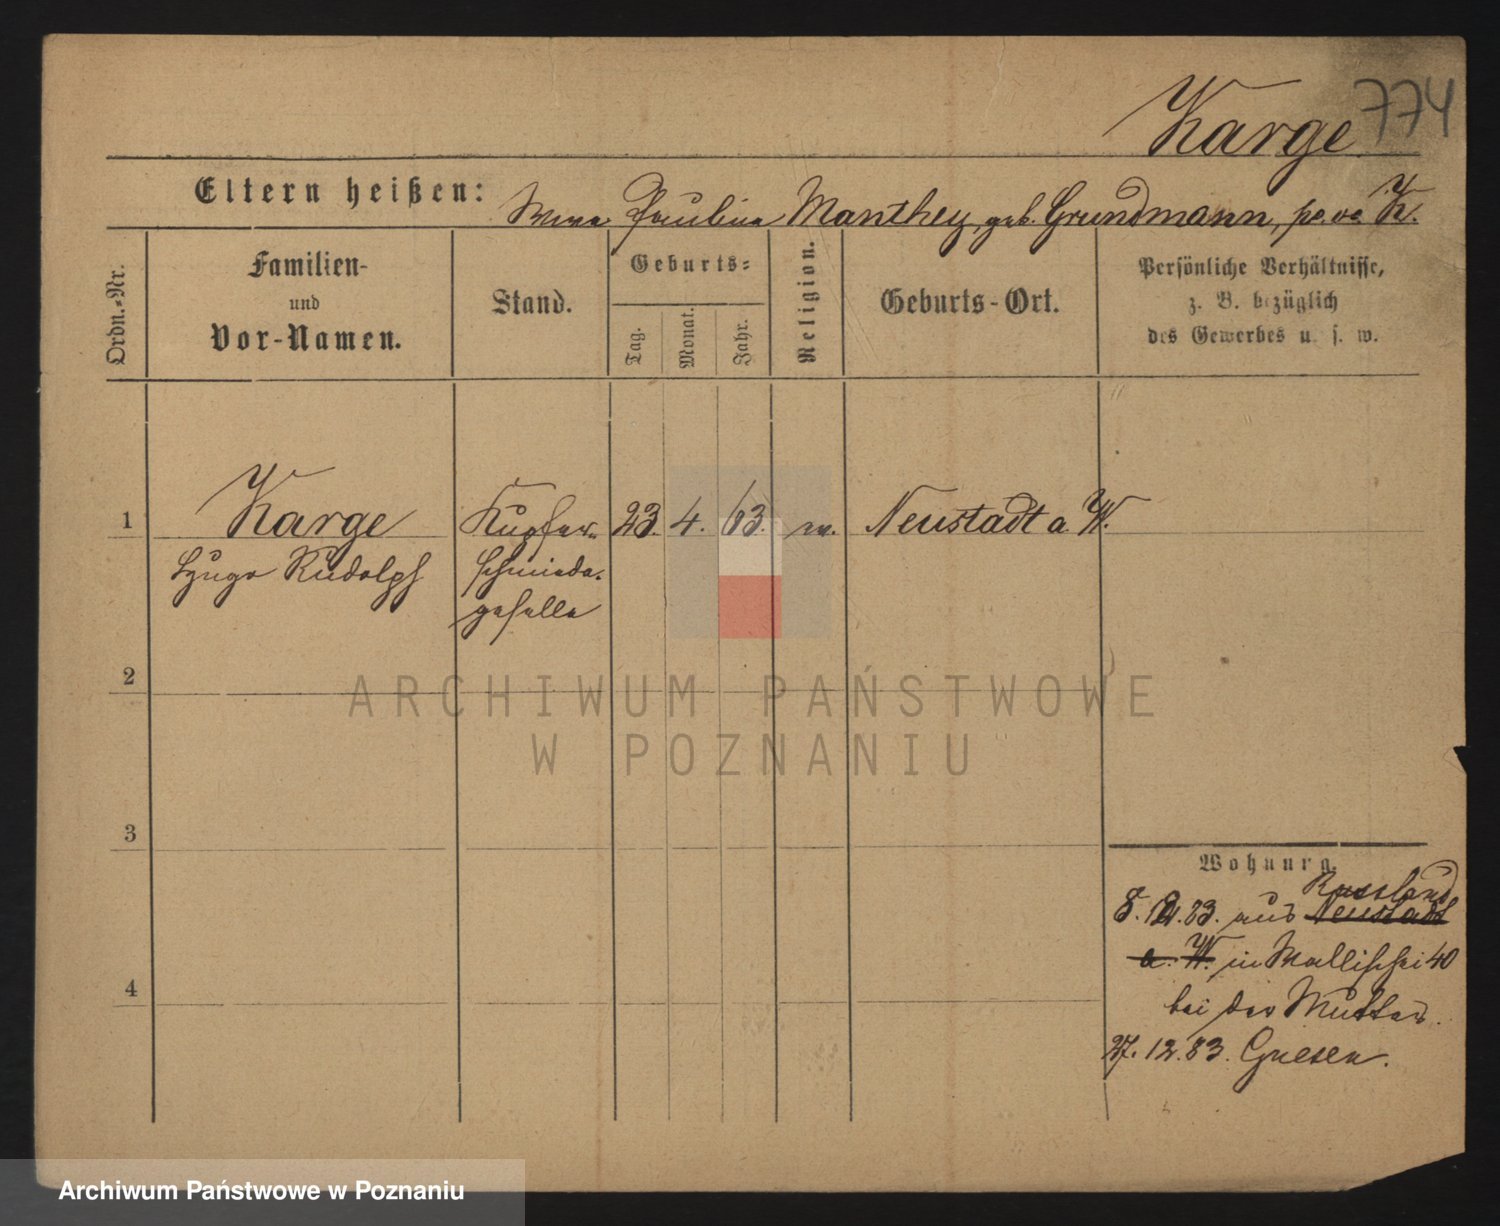 774
Karge.
Eltern heißen: Wwe. Pauline Manthey, geb. Grundmann, pr. vo. K.
Ordn.-Nr.
Familien-
und
Vor-Namen.
Stand.
Geburts-
Tag.
Monat.
Jahr.
Religion.
Geburts-Ort.
Persönliche Verhältnisse,
z. B. bezüglich
des Gewerbes u. s. w.
1 Karge Kupfer- 23. 4. 63. ev. Neustadt a. W.
Hugo Rudolph schmiede-
geselle
2
ARCHIWUM PAŃSTWOWE
W POZNANIU
3
4
Wohnung.
Russland
8. 12. 83. aus Neustadt
a. W. in Wallischei 40
bei der Mutter.
27. 12. 83. Gnesen.
Archiwum Państwowe w Poznaniu